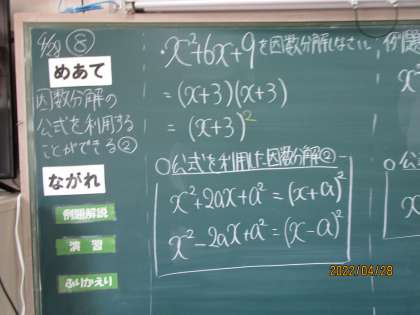 4/28 ⑧
めあて
因数分解の
公式を利用する
ことができる②
ながれ
例題解説
演習
ふりかえり
・x²+6x+9を因数分解しなさい。
=(x+3)(x+3)
=(x+3)²
○公式を利用した因数分解②
x²+2ax+a²=(x+a)²
x²-2ax+a²=(x-a)²
例題
x²
○公
x
2022/04/28